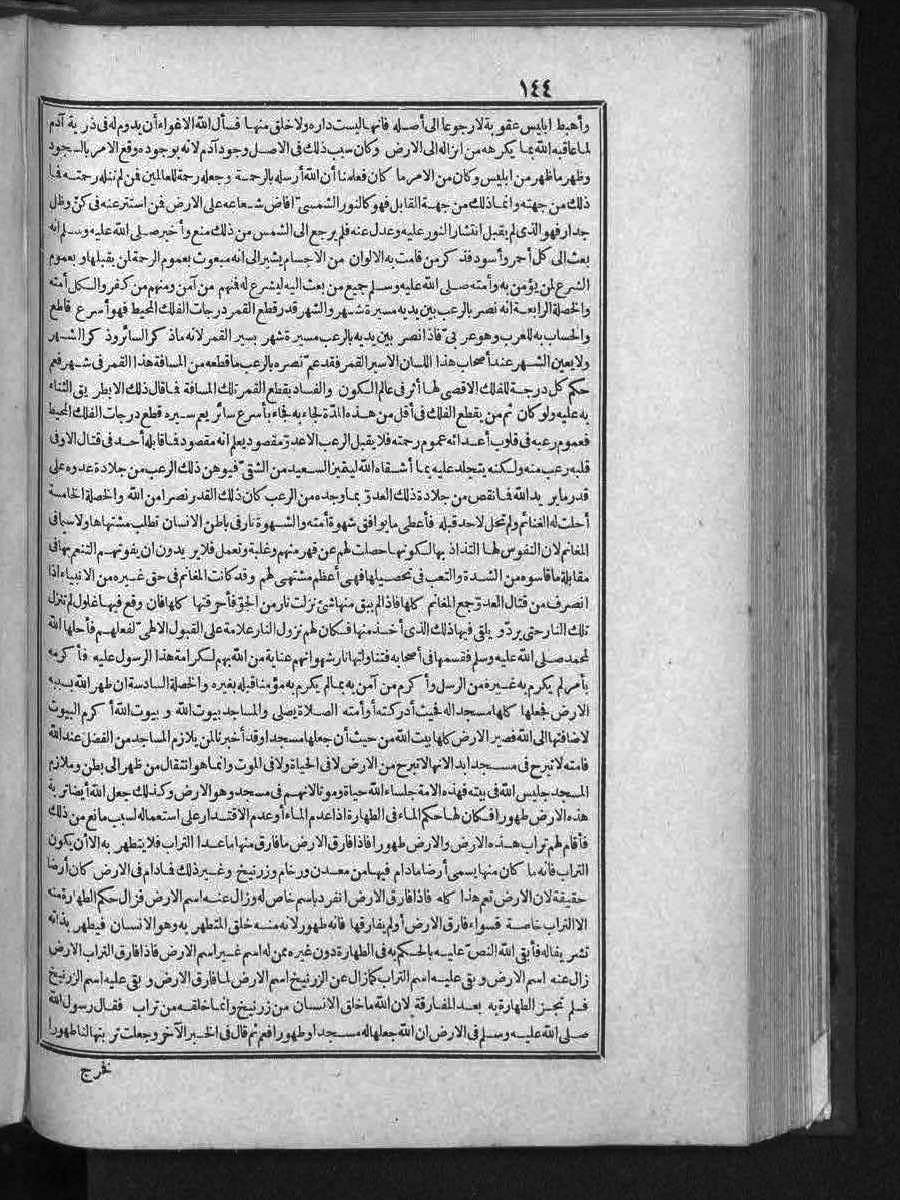 ١٤٤
وأهبط ابليس عقوبة لا رجوعا الى أصله فانها ليست داره ولا خلق منها فسأل الله الاغواء أن يدوم له فى ذرية آدم
لما عاقبه الله بما يكرهه من انزاله الى الارض وكان سبب ذلك فى الاصل وجود آدم لانه بوجوده وقع الامر بالسجود
وظهر ما ظهر من ابليس وكان من الامر ما كان فعلمنا أن الله أرسله بالرحمة وجعله رحمة للعالمين فمن لم تنله رحمته فما
ذلك من جهته وانما ذلك من جهة القابل فهو كالنور الشمسى أفاض شعاعه على الارض فمن استتر عنه فى كنّ وظل
جدار فهو الذى لم يقبل انتشار النور عليه وعدل عنه فلم يرجع الى الشمس من ذلك منع وأخبر صلى الله عليه وسلم انه
بعث الى كل أحمر وأسود فذكر من قامت به الالوان من الاجسام يشير الى انه مبعوث بعموم الرحمة لمن يقبلها وبعموم
الشرع لمن يؤمن به وأمته صلى الله عليه وسلم جميع من بعث اليه ليشرع له فمنهم من آمن ومنهم من كفر والكل أمته
والخصلة الرابعة انه نصر بالرعب بين يديه مسيرة شهر والشهر قدر قطع القمر درجات الفلك المحيط فهو أسرع قاطع
والحساب به للعرب وهو عربىّ فاذا نصر بين يديه بالرعب مسيرة شهر بسير القمر لانه ما ذكر السائر وذكر الشهر
ولا يعين الشهر عند أصحاب هذا اللسان الاسير القمر فقد عمّ نصره بالرعب ما قطعه من المسافة هذا القمر فى شهر فعم
حكم كل درجة للفلك الاقصى لها أثر فى عالم الكون والفساد بقطع القمر تلك المسافة فما قال ذلك الا بطريق الثناء
به عليه ولو كان ثم من يقطع الفلك فى أقل من هذه المدّة لجاء به فجاء بأسرع سائر يعم سيره قطع درجات الفلك المحيط
فعموم رعبه فى قلوب أعدائه عموم رحمته فلا يقبل الرعب الا عدوّ مقصود يعلم انه مقصود فما قابله أحد فى قتال الا وفى
قلبه رعب منه ولكنه يتجلد عليه بما أشقاه الله ليتميز السعيد من الشقىّ فيوهن ذلك الرعب من جلادة عدوه على
قدر ما يريد الله فما نقص من جلادة ذلك العدوّ بما وجده من الرعب كان ذلك القدر نصرا من الله والخصلة الخامسة
أحلت له الغنائم ولم تحل لاحد قبله فأعطى ما يوافق شهوة أمته والشهوة نار فى باطن الانسان تطلب مشتهاها ولا سيما فى
المغانم لان النفوس لها التذاذ بها لكونها حصلت لهم عن قهر منهم وغلبة وتعمل فلا يريدون ان يفوتهم التنعم بها فى
مقابلة ما قاسوه من الشدة والتعب فى تحصيلها فهى أعظم مشتهى لهم وقد كانت المغانم فى حق غيره من الانبياء اذا
انصرف من قتال العدوّ جمع المغانم كلها فاذا لم يبق منها شئ نزلت نار من الجوّ فأحرقتها كلها فان وقع فيها غلول لم تنزل
تلك النار حتى يردّ ويلقى فيها ذلك الذى أخذ منها فكان لهم نزول النار علامة على القبول الالهىّ لفعلهم فأحلها الله
لمحمد صلى الله عليه وسلم فقسمها فى أصحابه فتناولتها نار شهواتهم عناية من الله بهم لكرامة هذا الرسول عليه فأكرمه
بأمر لم يكرم به غيره من الرسل وأكرم من آمن به بما لم يكرم به مؤمنا قبله بغيره والخصلة السادسة ان طهر الله بسببه
الارض فجعلها كلها مسجدا له فحيث أدركته أو أمته الصلاة يصلى والمساجد بيوت الله وبيوت الله أكرم البيوت
لاضافتها الى الله فصير الارض كلها بيت الله من حيث أن جعلها مسجدا وقد أخبرنا لمن يلازم المساجد من الفضل عند الله
فأمته لا تبرح فى مسجد ابدا لانها لا تبرح من الارض لا فى الحياة ولا فى الموت وانما هو انتقال من ظهر الى بطن وملازم
المسجد جليس الله فى بيته فهذه الامة جلساء الله حياة وموتا لانهم فى مسجد وهو الارض وكذلك جعل الله أيضا تربة
هذه الارض طهورا فكان لها حكم الماء فى الطهارة اذا عدم الماء أو عدم الاقتدار على استعماله لسبب مانع من ذلك
فأقام لهم تراب هذه الارض والارض طهورا فاذا فارق الارض ما فارق منها ما عدا التراب فلا يتطهر به الا أن يكون
التراب فانه ما كان منها يسمى أرضا ما دام فيها من معدن ورخام وزرنيخ وغير ذلك فما دام فى الارض كان أرضا
حقيقة لان الارض تعم هذا كله فاذا فارق الارض انفرد باسم خاص له وزال عنه اسم الارض فزال حكم الطهارة منه
الا التراب خاصة فسواء فارق الارض أو لم يفارقها فانه طهور لانه منه خلق المتطهر به وهو الانسان فيطهر بذاته
تشريفا له فأبقى الله النصّ عليه بالحكم به فى الطهارة دون غيره ممن له اسم غير اسم الارض فاذا فارق التراب الارض
زال عنه اسم الارض وبقى عليه اسم التراب كما زال عن الزرنيخ اسم الارض لما فارق الارض وبقى عليه اسم الزرنيخ
فلم تجز الطهارة به بعد المفارقة لان الله ما خلق الانسان من زرنيخ وانما خلقه من تراب فقال رسول الله
صلى الله عليه وسلم فى الارض ان الله جعلها له مسجدا وطهورا فعم ثم قال فى الخبر الآخر وجعلت تربتها لنا طهورا
فخرج